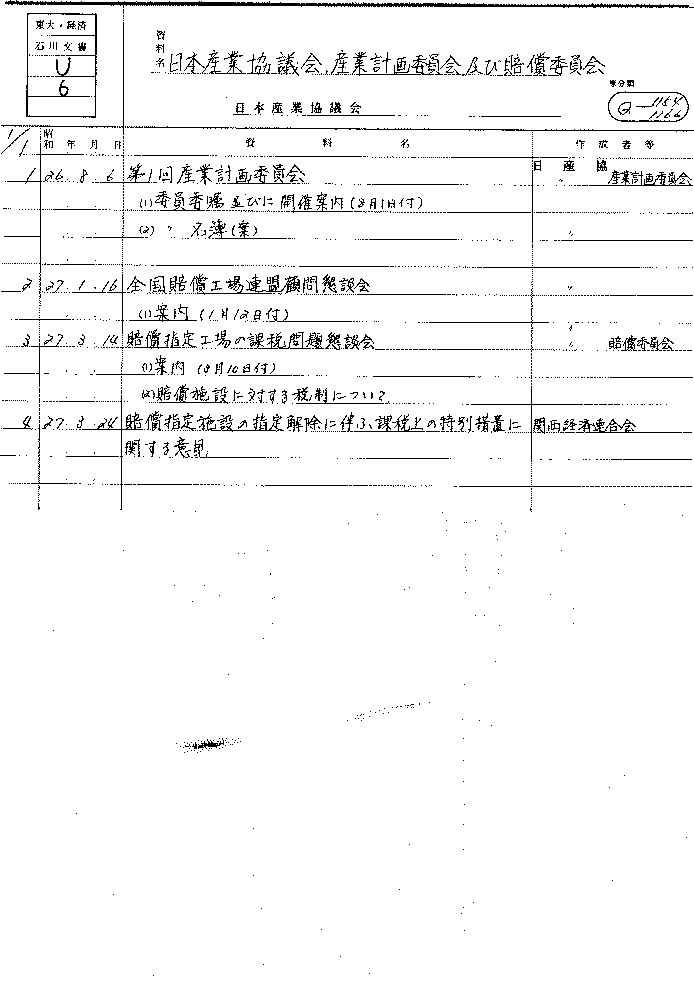 東大・経済
石川文書
U
6
資料名 日本産業協議会、産業計画委員会及び賠償委員会
日本産業協議会
東分類
Q-1164
1166
1/1
昭和 年 月 日 資料名 作成者等
日産協
1 26 8 6 第1回産業計画委員会 〃 産業計画委員会
(1)委員委嘱並びに開催案内(8月1日付)
(2) 〃 名簿(案) 〃
2 27 1 16 全国賠償工場連盟顧問懇談会 〃
(1)案内(1月12日付) 〃
3 27 3 14 賠償指定工場の課税問題懇談会 〃 賠償委員会
(1)案内(3月10日付)
(2)賠償施設に対する税制について
4 27 3 24 賠償指定施設の指定解除に伴ふ課税上の特別措置に 関西経済連合会
関する意見